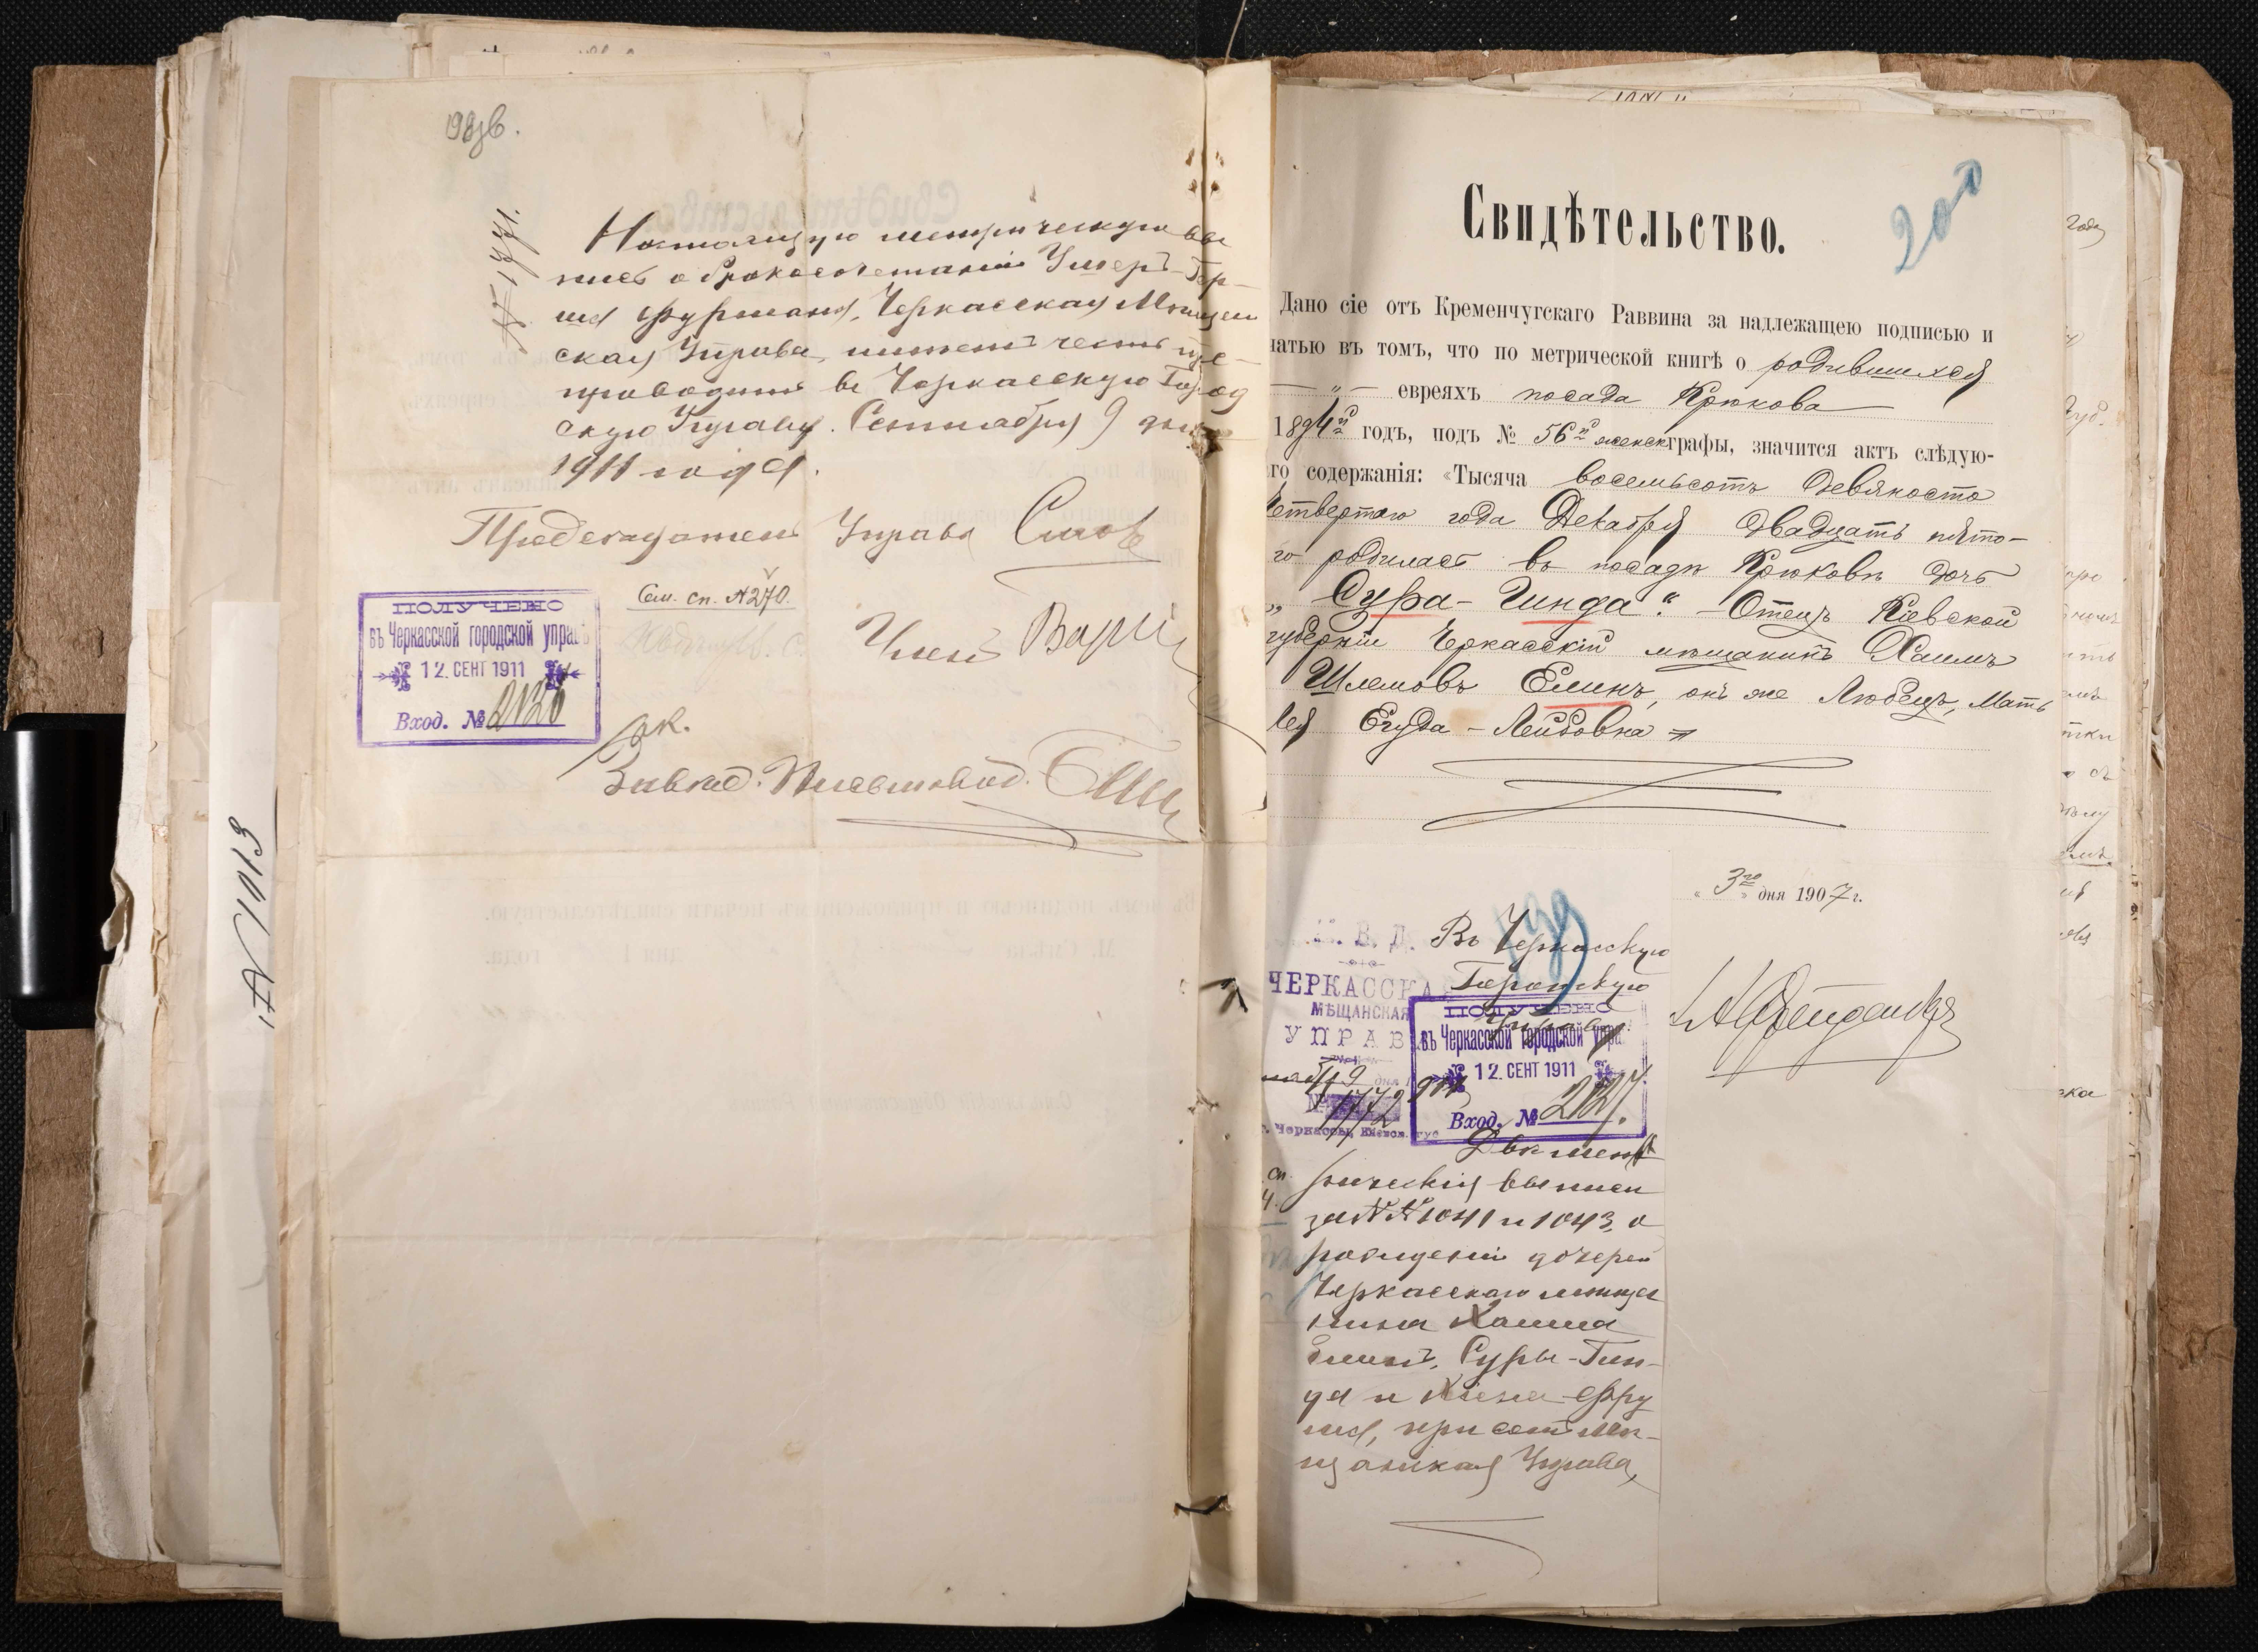 198зв.
№ 1771.
Настоящую метрическую вы
пись о бракосочетаніи Умеръ-Гер-
ша Фурмана, Черкасская Мѣщан
ская Управа, имѣетъ честь пре-
проводить въ Черкасскую Город
скую Управу. Сентября 9 дня
1911 года.
Предсѣдатель Управы
Сем. сп. № 270.
Членъ
ПОЛУЧЕНО
въ Черкасской городской управѣ
12. СЕНТ 1911
Вход. №
Завѣд. Письмовод.
№ 1013
200
Свидѣтельство.
Дано сіе отъ Кременчугскаго Раввина за надлежащею подписью и
чатью въ томъ, что по метрической книгѣ о родившихся
— „ — евреяхъ посада Крюкова
1894й годъ, подъ № 56й женск графы, значится актъ слѣдую-
го содержанія: «Тысяча восемьсотъ девяносто
Четвертаго года Декабря двадцать пято-
го родилась въ посадѣ Крюковѣ дочь
„Сура-Гинда“. – Отецъ Кіевской
губерніи Черкасскій мѣщанинъ Хаимъ
Шлемовъ Елинъ, онъ же Любецъ, Мать
Лея Егуда-Лейбовна =
« 3го » дня 1907 г.
199
М. В. Д.
ЧЕРКАССКАЯ
МѢЩАНСКАЯ
УПРАВА
9 дня
№ 1772
г. Черкассы, Кіевск. губ
Въ Черкасскую
Городскую
Управу.
ПОЛУЧЕНО
въ Черкасской городской упра
12. СЕНТ 1911
Вход. № 2127.
Двѣ мет
рическія выписи
за №№ 1041 и 1043, о
рожденіи дочерей
Черкасскаго мѣща
нина Хаима
Елинъ, Суры-Гин-
ды и Хiена-Фру
ма, при семъ Мѣ-
щанская Управа,